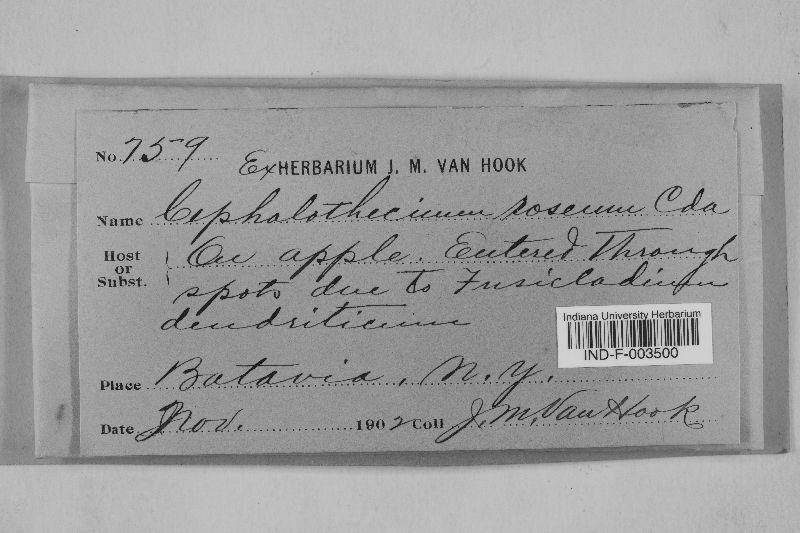 No. 759
Ex HERBARIUM J. M. VAN HOOK
Name Cephalothecium roseum Cda
Host or Subst. On apple. Entered Through
spots due to Fusicladium
dendriticum
Indiana University Herbarium
IND-F-003500
Place Batavia, N.Y.
Date Nov. 1902 Coll J.M. Van Hook